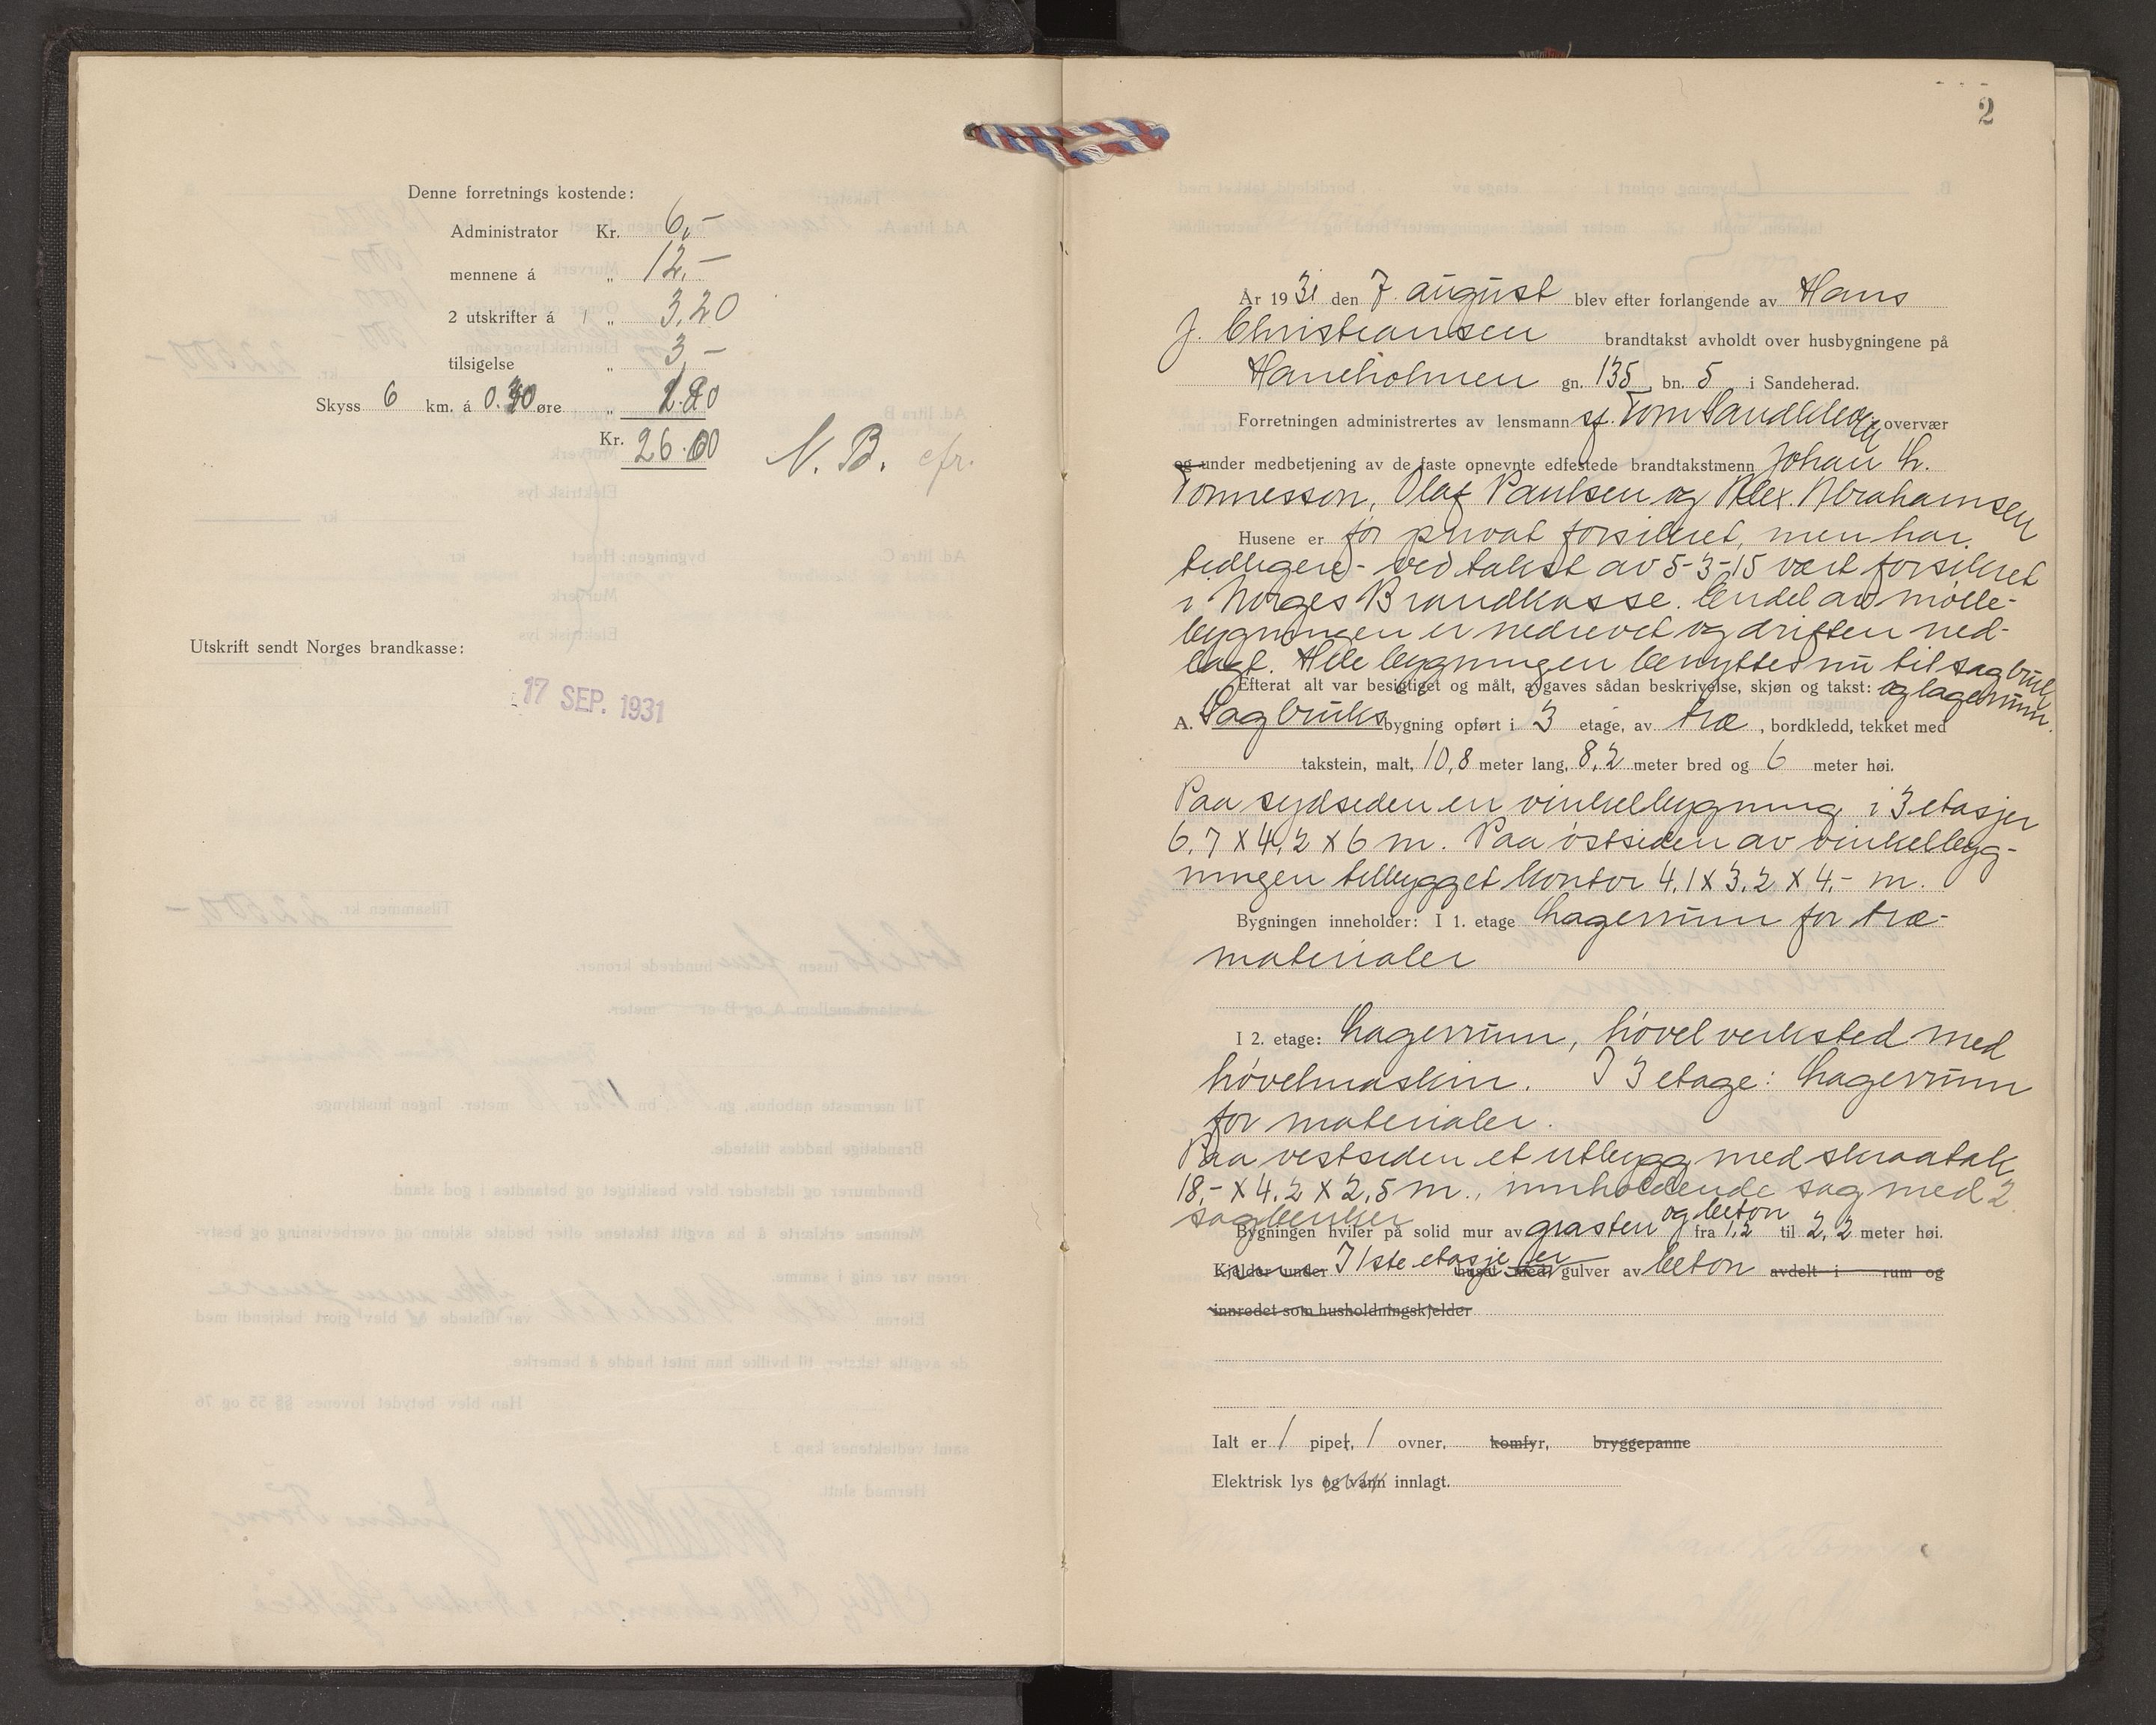 Denne forretnings kostende:
Administrator Kr. 6,-
mennene á „ 12,-
2 utskrifter á 1 „ 3,20
tilsigelse „ 3,-
Skyss 6 km. á 0.30 øre „ 1.80
Kr. 26.00 N. B. cfr.
Utskrift sendt Norges brandkasse:
17 SEP. 1931
2
År 1931 den 7. august blev efter forlangende av Hans
J. Christiansen brandtakst avholdt over husbygningene på
Haneholmen gn. 135, bn. 5 i Sandeherad.
Forretningen administrertes av lensmann Tom overvær
og under medbetjening av de faste opnevnte edfestede brandtakstmenn Johan
Tønnesson, Olaf Paulsen og Alex. Abrahamsen
Husene er før privat forsikret, men har
tidligere - ved takst av 5-3-15 vært forsikret
i Norges Brandkasse. Endel av mølle-
bygningen er nedrevet og driften ned-
lagt. Hele bygningen benyttes nu til sagbruk
Efterat alt var besigtiget og målt, avgaves sådan beskrivelse, skjøn og takst: og lagerrum.
A. Sagbruks bygning opført i 3 etage, av træ, bordkledd, tekket med
takstein, malt, 10,8 meter lang, 8,2 meter bred og 6 meter høi.
Paa sydsiden en vinkelbygning i 3 etasjer
6,7 x 4,2 x 6 m. Paa østsiden av vinkelbyg-
ningen tilbygget kontor 4,1 x 3,2 x 4,- m.
Bygningen inneholder: I 1. etage Lagerrum for træ-
materialer
I 2. etage: Lagerrum, høvelverksted med
høvelmaskin. I 3 etage: Lagerrum
for materialer.
Paa vestsiden et utbygg med skraatak
18,- x 4,2 x 2,5 m., innholdende sag med 2
sagbenker
Bygningen hviler på solid mur av graasten og beton fra 1,2 til 2,2 meter høi.
Kjelder under I 1ste etasje er huset med gulver av beton avdelt i rum og
innredet som husholdningskjelder
Ialt er 1 pipet, 1 ovner, komfyr, bryggepanne
Elektrisk lys og vann innlagt.